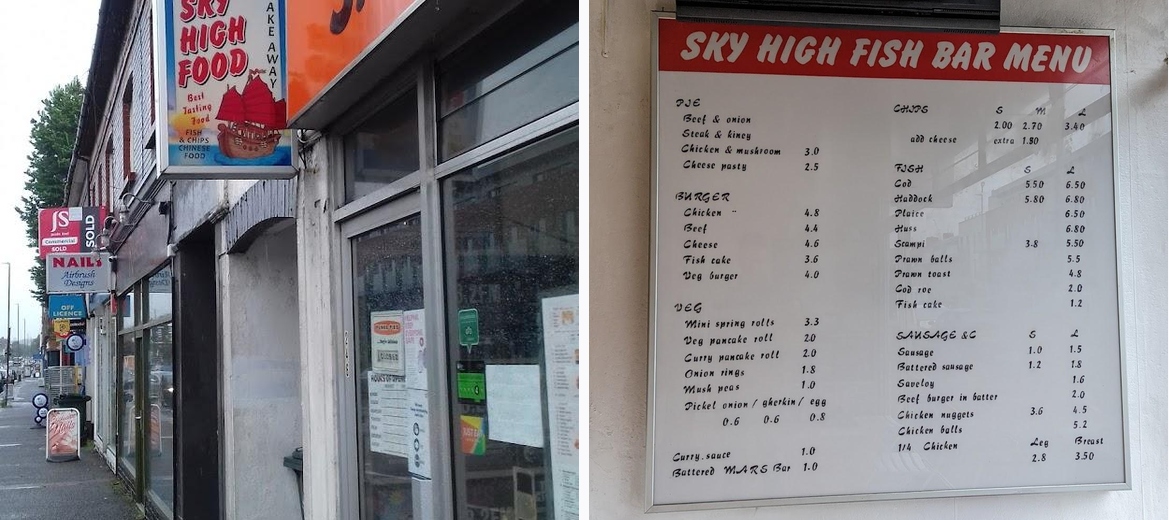 SKY
HIGH
FOOD
TAKE AWAY
Best
Tasting
Food
FISH
& CHIPS
CHINESE
FOOD
JS
Commercial
SOLD
SOLD
NAILS
Airbrush
Designs
OFF
LICENCE
HOURS OF
JUST EAT
SKY HIGH FISH BAR MENU
PIE
Beef & onion
Steak & kincy
Chicken & mushroom 3.0
Cheese pasty 2.5
BURGER
Chicken 4.8
Beef 4.4
Cheese 4.6
Fish cake 3.6
Veg burger 4.0
VEG
Mini spring rolls 3.3
Veg pancake roll 20
Curry pancake roll 2.0
Onion rings 1.8
Mush peas 1.0
Pickel onion / gherkin / egg
0.6 0.6 0.8
Curry.sauce 1.0
Battered MARS Bar 1.0
CHIPS S M L
2.00 2.70 3.40
add cheese extra 1.80
FISH S L
Cod 5.50 6.50
Haddock 5.80 6.80
Plaice 6.50
Huss 6.80
Scampi 3.8 5.50
Prawn balls 5.5
Prawn toast 4.8
Cod roe 2.0
Fish cake 1.2
SAUSAGE &C S L
Sausage 1.0 1.5
Battered sausage 1.2 1.8
Saveloy 1.6
Beef burger in batter 2.0
Chicken nuggets 3.6 4.5
Chicken balls 5.2
1/4 Chicken Leg Breast
2.8 3.50